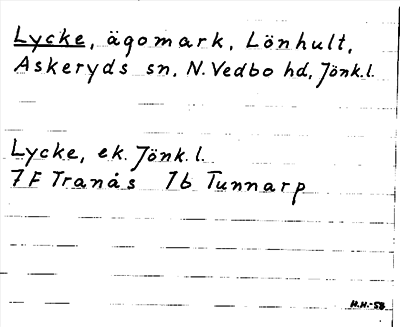 Lycke, ägomark, Lönhult,
Askeryds sn, N. Vedbo hd, Jönk. l.
Lycke, ek. Jönk. l.
7F Tranås 7b Tunnarp
H.H.-58